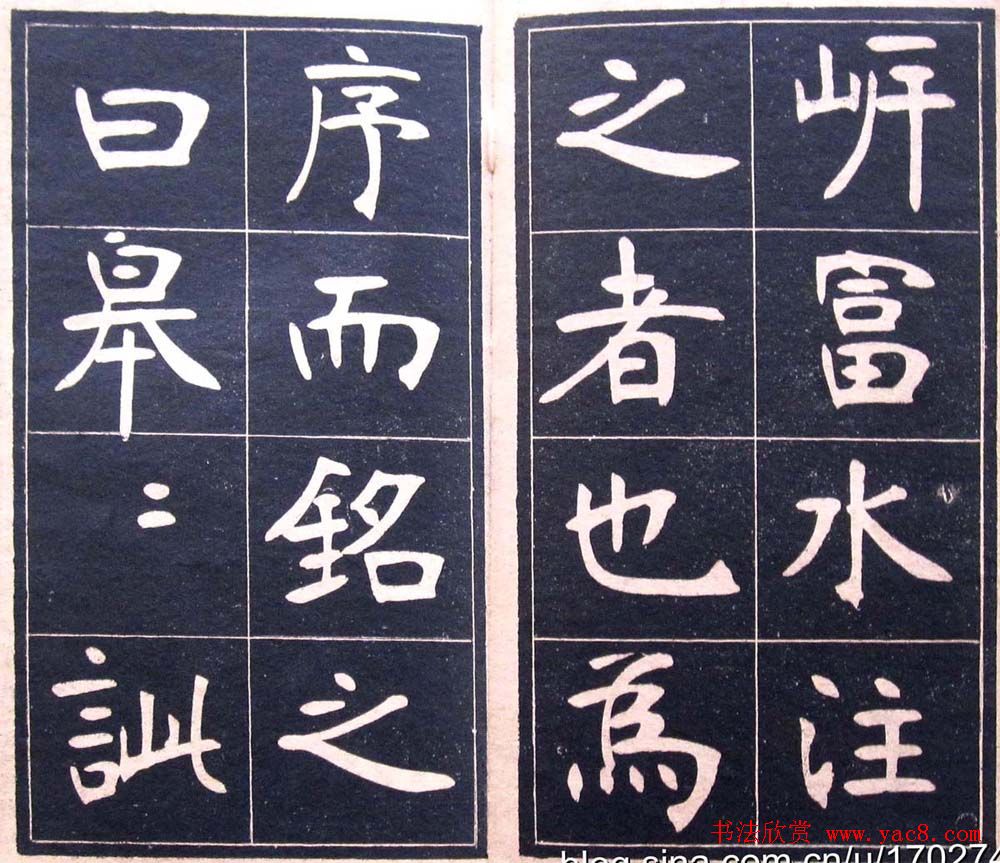 岍富水注
之者也為
序而銘之
曰皋〻訿
书法欣赏 www.yac8.com
blog.sina.com.cn/u/17027